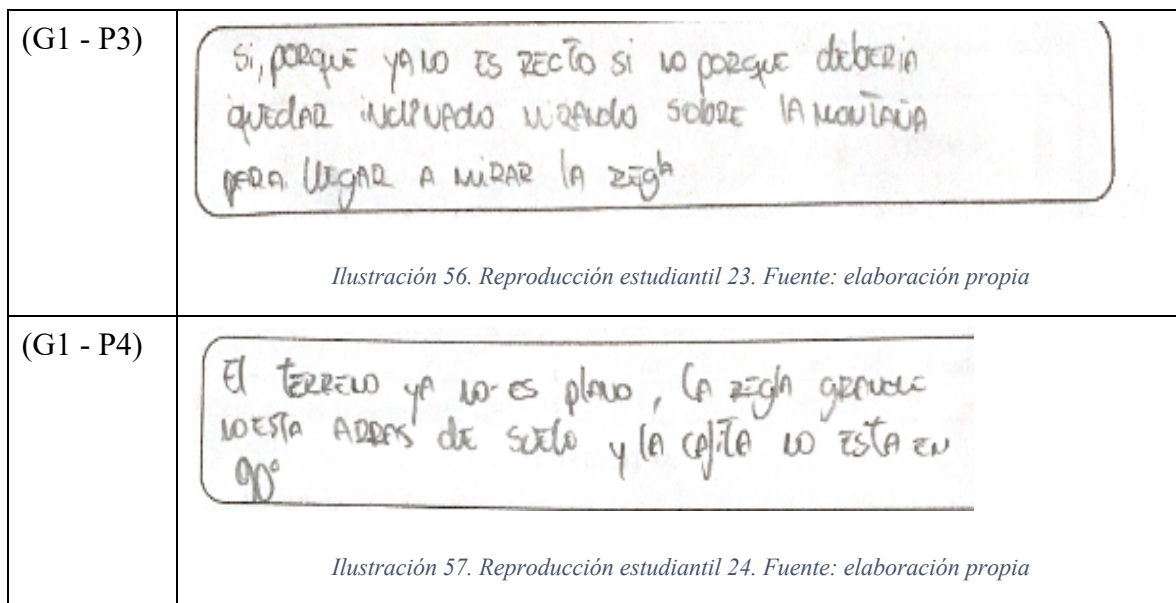 (G1 - P3)
Si, porque ya no es recto si no porque deberia
quedar inclinado mirando sobre la montaña
para llegar a mirar la regla
Ilustración 56. Reproducción estudiantil 23. Fuente: elaboración propia
(G1 - P4)
El terreno ya no es plano, la regla grande
no esta arras de suelo y la cajita no esta en
90°
Ilustración 57. Reproducción estudiantil 24. Fuente: elaboración propia